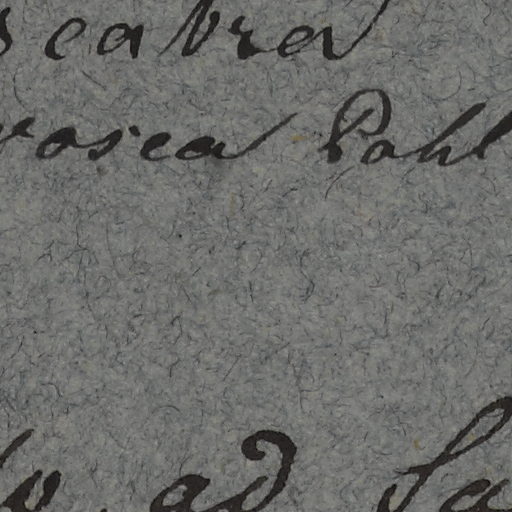 scabra
rosea Pohl
ad